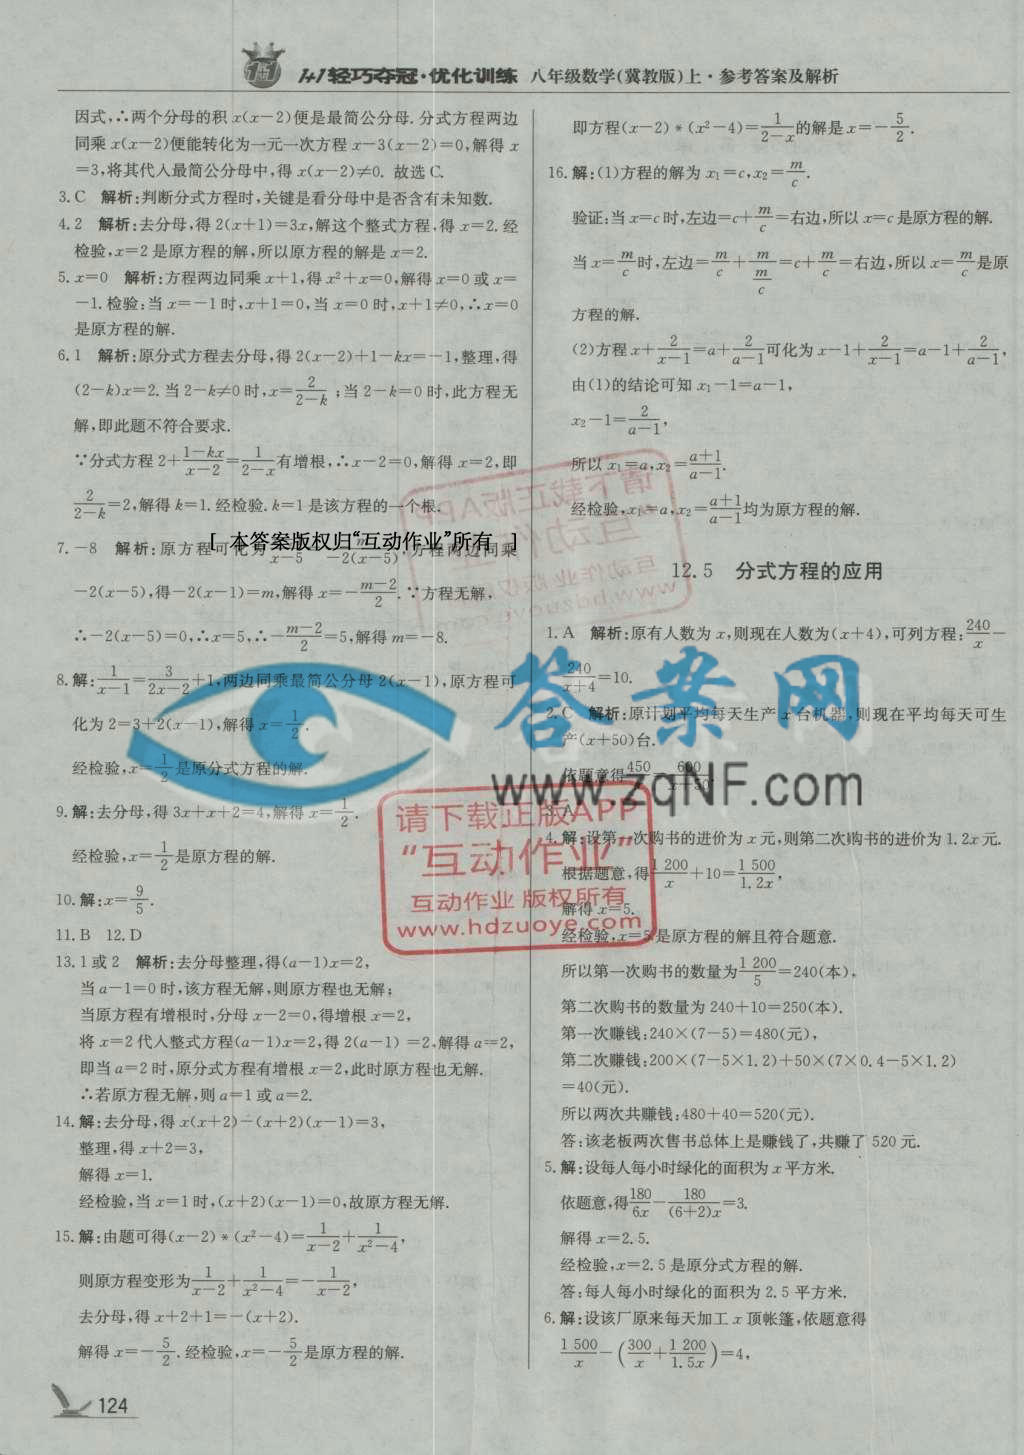 1+1轻巧夺冠·优化训练 八年级数学(冀教版)上·参考答案及解析
因式,∴两个分母的积 x(x-2)便是最简公分母.分式方程两边
同乘 x(x-2)便能转化为一元一次方程 x-3(x-2)=0,解得 x
=3,将其代入最简公分母中,得 x(x-2)≠0. 故选C.
3. C 解析:判断分式方程时,关键是看分母中是否含有未知数.
4. 2 解析:去分母,得 2(x+1)=3x,解这个整式方程,得 x=2. 经
检验,x=2 是原方程的解,所以原方程的解是 x=2.
5. x=0 解析:方程两边同乘 x+1,得 x²+x=0,解得 x=0 或 x=
-1. 检验:当 x=-1 时,x+1=0,当 x=0 时,x+1≠0,∴x=0
是原方程的解.
6. 1 解析:原分式方程去分母,得 2(x-2)+1-kx=-1,整理,得
(2-k)x=2. 当 2-k≠0 时,x=2/(2-k);当 2-k=0 时,此方程无
解,即此题不符合要求.
∵分式方程 2+(1-kx)/(x-2)=1/(2-x)有增根,∴x-2=0,解得 x=2,即
2/(2-k)=2,解得 k=1. 经检验. k=1 是该方程的一个根.
[ 本答案版权归“互动作业”所有 ]
7. -8 解析:原方程可化为 x-5 -2(x-5),方程两边同乘
-2(x-5),得-2(x-1)=m,解得 x=-(m-2)/2. ∵方程无解,
∴-2(x-5)=0,∴x=5,∴-(m-2)/2=5,解得 m=-8.
8. 解:1/(x-1)=3/(2x-2)+1,两边同乘最简公分母 2(x-1),原方程可
化为 2=3+2(x-1),解得 x=1/2.
经检验,x=1/2是原分式方程的解.
9. 解:去分母,得 3x+x+2=4,解得 x=1/2.
经检验,x=1/2是原方程的解.
10. 解:x=9/5.
11. B 12. D
13. 1 或 2 解析:去分母整理,得(a-1)x=2,
当 a-1=0 时,该方程无解,则原方程也无解;
当原方程有增根时,分母 x-2=0,得增根 x=2,
将 x=2 代入整式方程(a-1)x=2,得 2(a-1)=2,解得 a=2,
即当 a=2 时,原分式方程有增根 x=2,此时原方程也无解.
∴若原方程无解,则 a=1 或 a=2.
14. 解:去分母,得 x(x+2)-(x+2)(x-1)=3,
整理,得 x+2=3,
解得 x=1.
经检验,当 x=1 时,(x+2)(x-1)=0,故原方程无解.
15. 解:由题可得(x-2)*(x²-4)=1/(x-2)+1/(x²-4),
则原方程变形为1/(x-2)+1/(x²-4)=-1/(x-2),
去分母,得 x+2+1=-(x+2).
解得 x=-5/2. 经检验,x=-5/2是原方程的解.
124
即方程(x-2)*(x²-4)=1/(2-x)的解是 x=-5/2.
16. 解:(1)方程的解为 x₁=c,x₂=m/c.
验证:当 x=c 时,左边=c+m/c=右边,所以 x=c 是原方程的解.
当 x=m/c时,左边=m/c+m/(m/c)=c+m/c=右边,所以 x=m/c是原
方程的解.
(2)方程 x+2/(x-1)=a+2/(a-1)可化为 x-1+2/(x-1)=a-1+2/(a-1),
由(1)的结论可知 x₁-1=a-1,
x₂-1=2/(a-1),
所以 x₁=a,x₂=(a+1)/(a-1).
经检验,x₁=a,x₂=(a+1)/(a-1)均为原方程的解.
12.5 分式方程的应用
1. A 解析:原有人数为 x,则现在人数为(x+4),可列方程:240/x-
240/(x+4)=10.
2. C 解析:原计划平均每天生产 x 台机器,则现在平均每天可生
产(x+50)台.
依题意得450/x=600/(x+50)
3. A
4. 解:设第一次购书的进价为 x 元,则第二次购书的进价为 1.2x 元.
根据题意,得1 200/x+10=1 500/1.2x,
解得 x=5.
经检验,x=5是原方程的解且符合题意.
所以第一次购书的数量为1 200/5=240(本),
第二次购书的数量为 240+10=250(本).
第一次赚钱:240×(7-5)=480(元),
第二次赚钱:200×(7-5×1.2)+50×(7×0.4-5×1.2)
=40(元).
所以两次共赚钱:480+40=520(元).
答:该老板两次售书总体上是赚钱了,共赚了 520 元.
5. 解:设每人每小时绿化的面积为 x 平方米.
依题意,得180/6x-180/(6+2)x=3.
解得 x=2.5.
经检验,x=2.5 是原分式方程的解.
答:每人每小时绿化的面积为 2.5 平方米.
6. 解:设该厂原来每天加工 x 顶帐篷,依题意得
1 500/x-(300/x+1 200/1.5x)=4,
请下载正版APP
互动作业
互动作业 版权所有
www.hdzuoye.com
答案网
www.zqNF.com
请下载正版APP
“互动作业”
互动作业 版权所有
www.hdzuoye.com